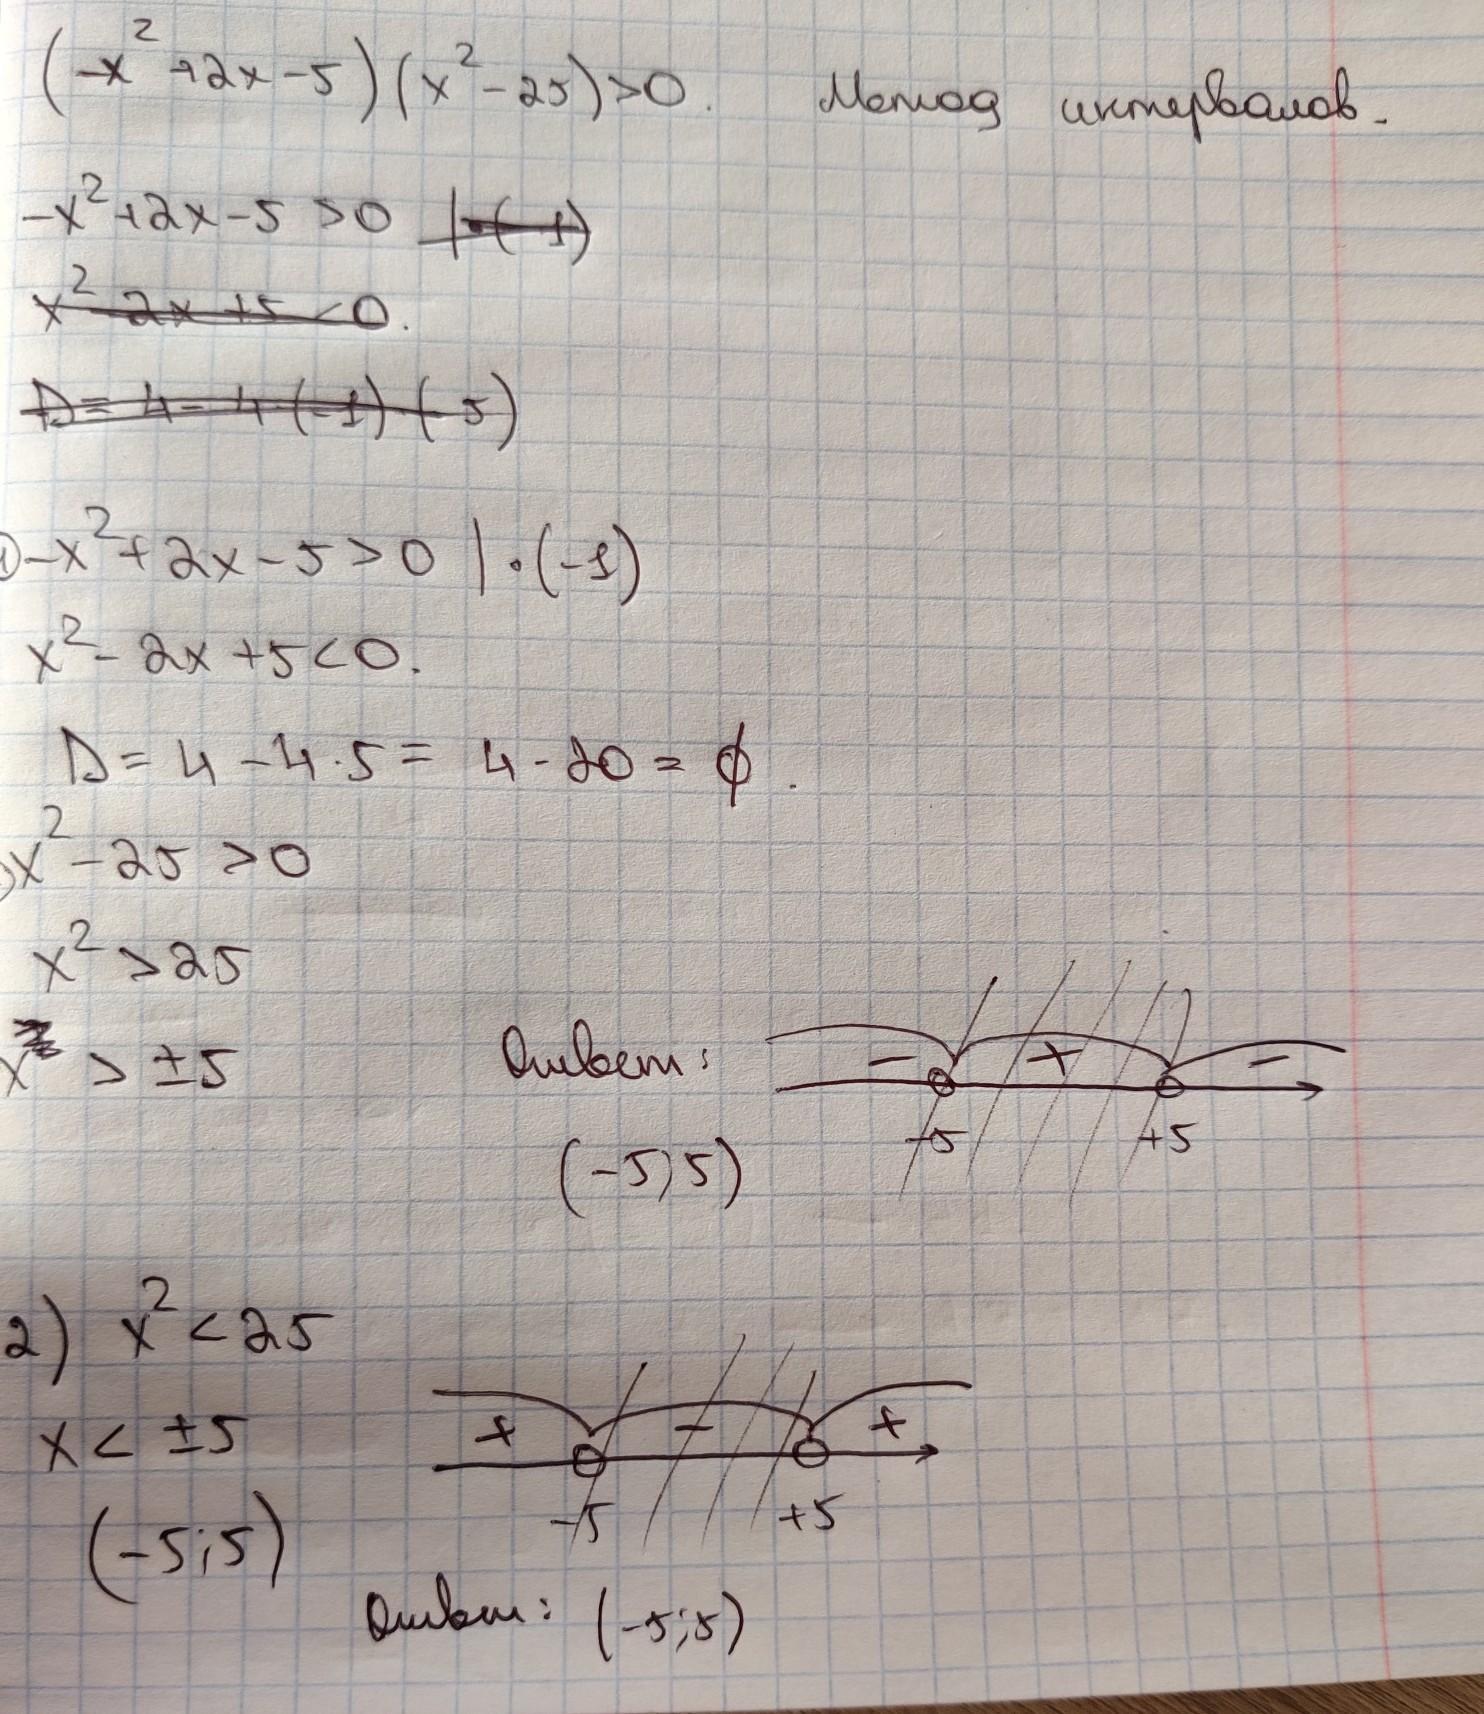 (-x²+2x-5)(x²-25)>0. Метод интервалов.
-x²+2x-5>0 |·(-1)
x²-2x+5<0.
D=4-4·(-1)·(-5)
1) -x²+2x-5>0 |·(-1)
x²-2x+5<0.
D=4-4·5=4-20=ϕ.
x²-25>0
x²>25
x>±5
Ответ: - + -
-5 +5
(-5;5)
2) x²<25
x<±5
+ - +
-5 +5
(-5;5)
Ответ: (-5;5)